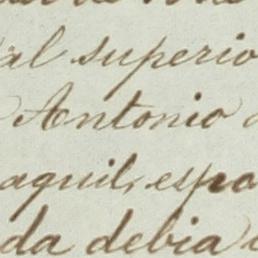 al superio
Antonio
aquil, espo
da debia